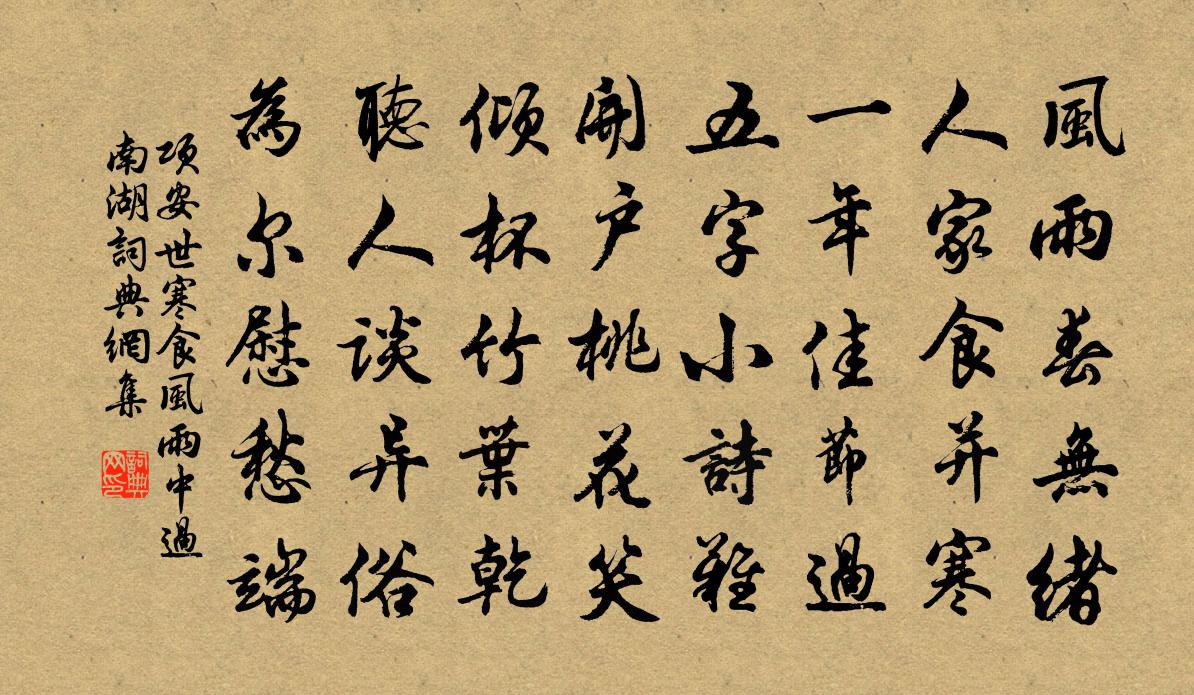 風雨春無緒
人家食并寒
一年佳節過
五字小詩難
開戶桃花笑
傾杯竹葉乾
聽人談异俗
為尔慰愁端
項安世寒食風雨中過
南湖詞典網集
詞典
网印